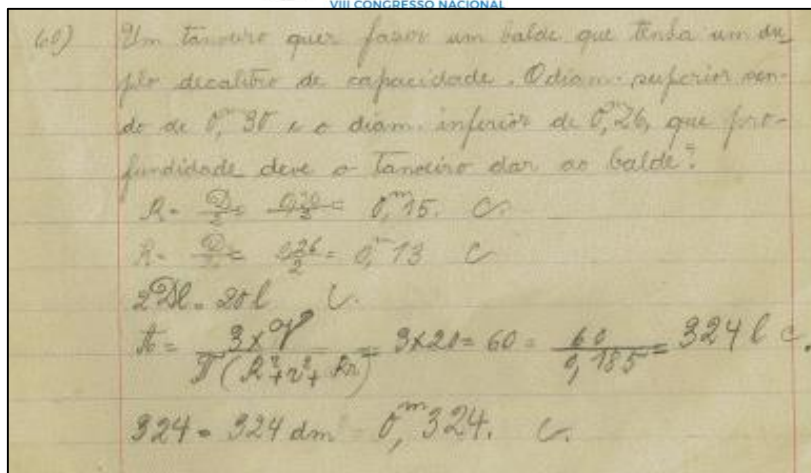 VIII CONGRESSO NACIONAL
60) Um tanoeiro quer fazer um balde que tenha um du-
plo decalitro de capacidade. O diam. superior sen-
do de 0,ᵐ30 e o diam. inferior de 0,ᵐ26, que pro-
fundidade deve o tanoeiro dar ao balde?
R = D/2 = 0,30/2 = 0,ᵐ15. C.
R = D/2 = 0,26/2 = 0,ᵐ13 C
2Dl = 20l C.
3×V / π(R²+r²+Rr) = 3×20 = 60 = 60 / 0,185 = 324 l C.
324 = 324 dm 0,ᵐ324. C.